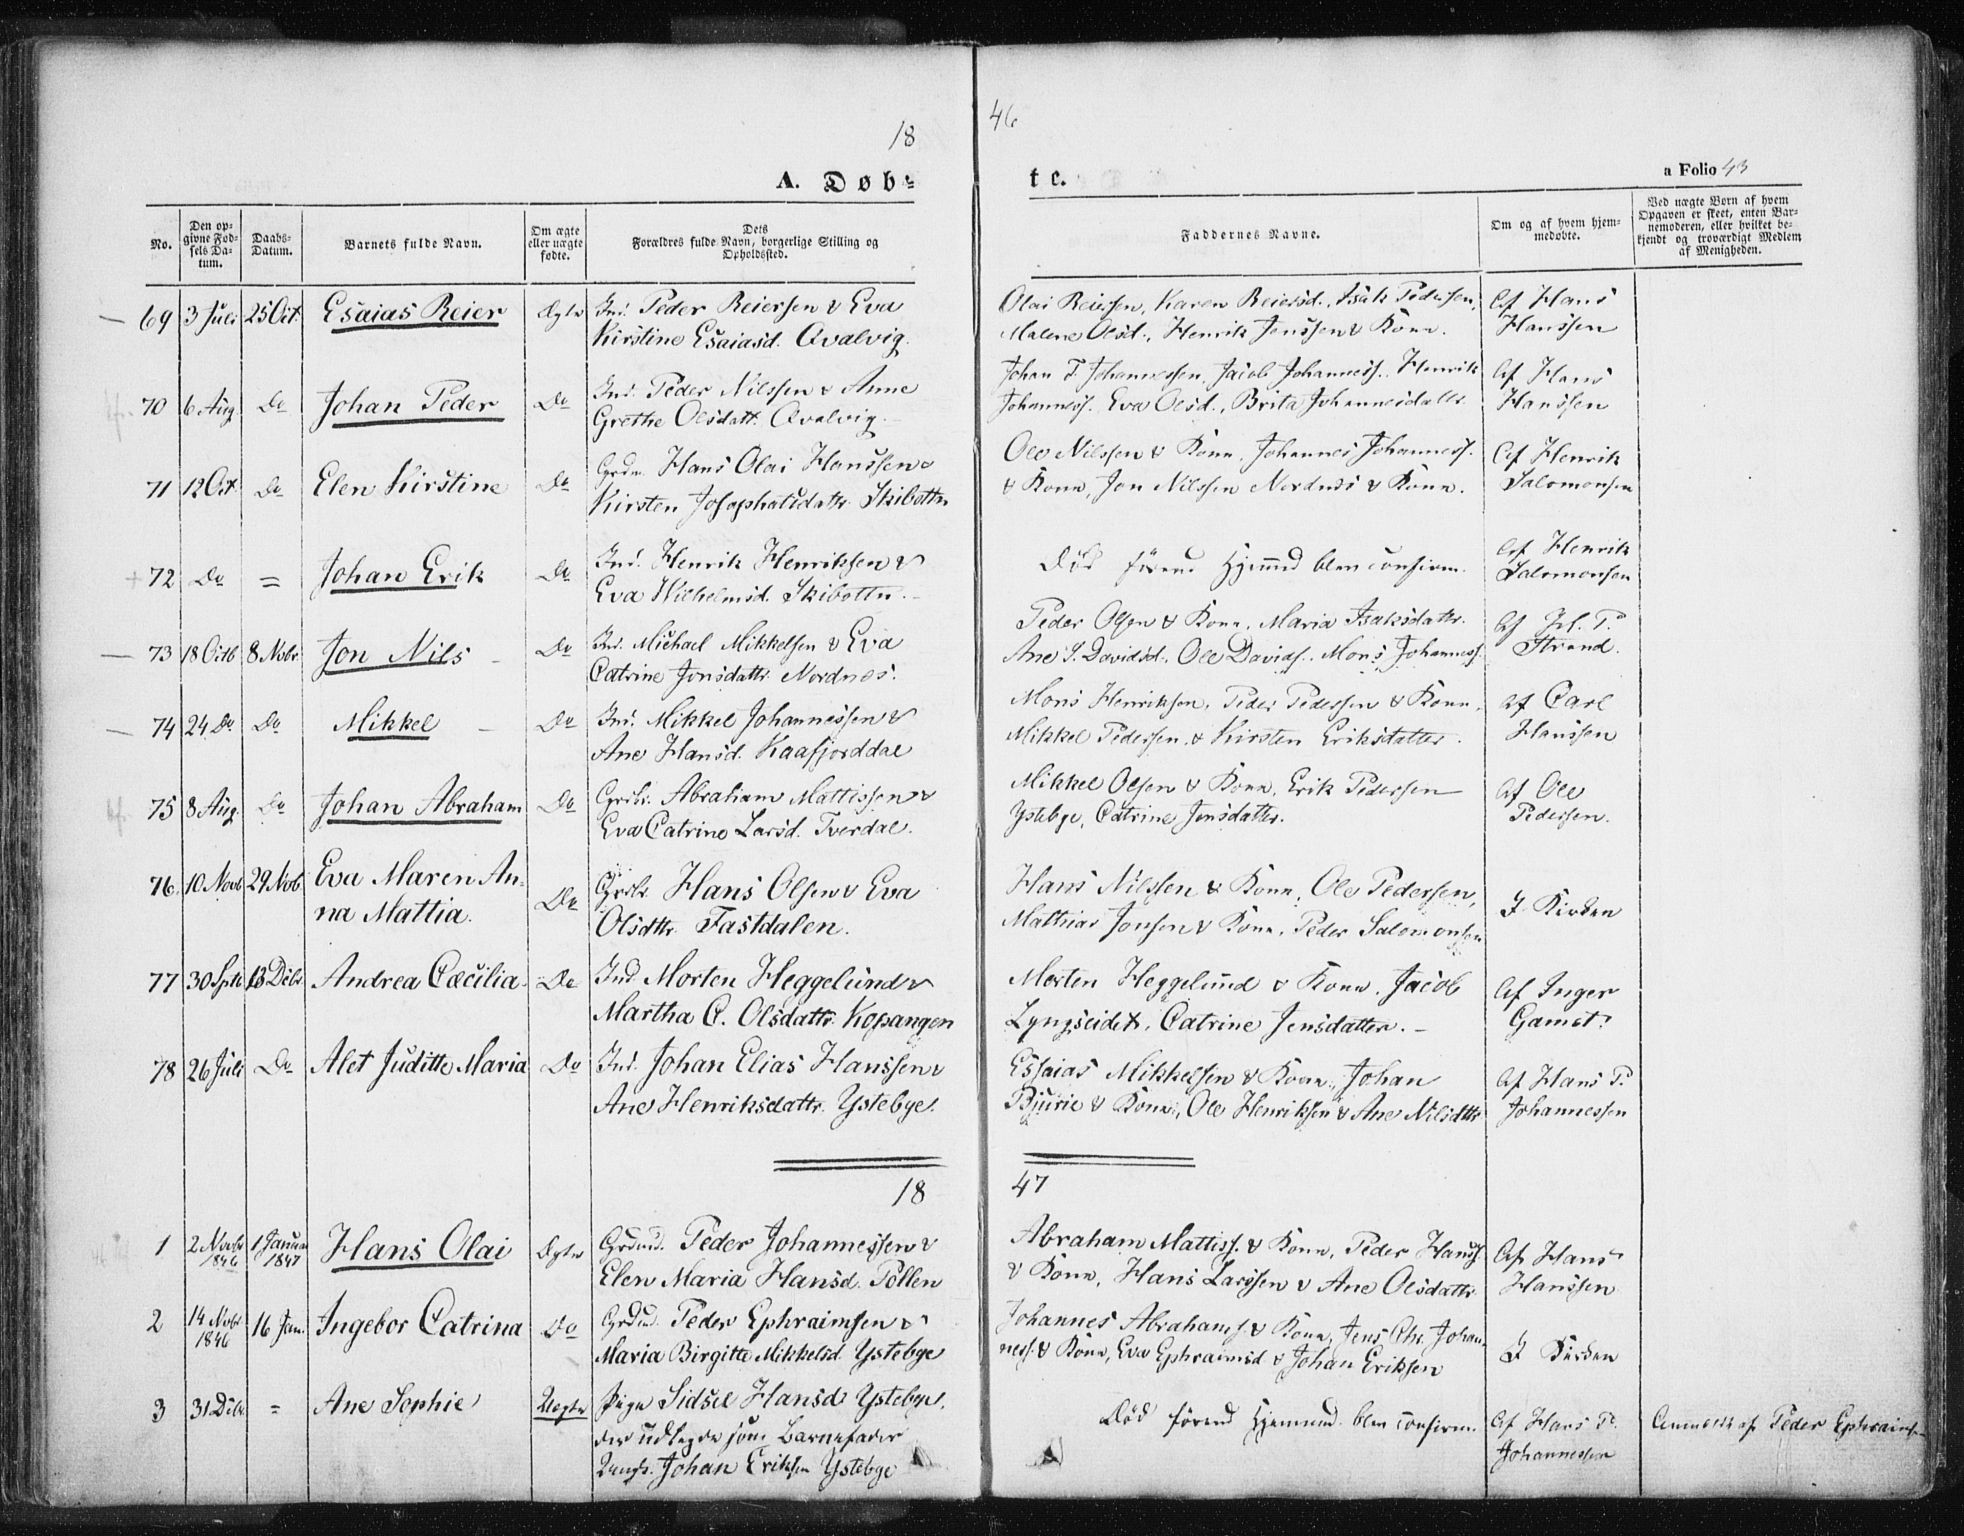 18
46
A. Døb-
te.
a Folio 43
No.
Den op-
givne Fød-
sels Da-
tum.
Daabs-
Datum.
Barnets fulde Navn.
Om ægte
eller uægte
fødte.
Dets
Forældres fulde Navn, borgerlige Stilling og
Opholdssted.
Faddernes Navne.
Om og af hvem hjem-
medøbte.
Ved uægte Børn af hvem
Opgaven er skeet, enten Bar-
nemoderen, eller hvilket be-
kjendt og troværdigt Medlem
af Menigheden.
69 3 Juli 25 Oct. Esaias Reier Ægte Ind. Peder Reiersen & Eva
Kirstine Esaiasd. Qvalvig.
Olai Reiersen, Karen Reiersd., Isak Pedersen,
Malene Olsd., Henrik Jenssen & Kone.
Af Hans
Hanssen
70 6 Aug. Do Johan Peder Do Ind. Peder Nilssen & Anne
Grethe Olsdatt. Qvalvig.
Johan T. Johannessen, Jacob Johanness., Henrik
Johanness. Eva Olsd., Brita Johannesdattr.
Af Hans
Hanssen
71 12 Oct. Do Elen Kirstine Do Grdm. Hans Olai Hanssen &
Kirsten Josaphatsdattr. Skibottn
Ole Nilssen & Kone, Johannes Johanness.
& Kone, Jon Nilssen Nordnes & Kone.
Af Henrik
Salomonsen
72 Do = Johan Erik Do Ind. Henrik Henriksen &
Eva Wilhelmsd. Skibottn.
Død førend Hjemmed. blev confirm.
Af Henrik
Salomonsen
73 18 Octb 8 Novbr. Jon Nils Do Ind. Michael Mikkelsen & Eva
Catrine Jonsdattr. Nordnes.
Peder Olsen & Kone, Maria Isaksdattr.
Ane S. Davidsd., Ole Davids., Mons Johanness.
Af H. P.
Strand.
74 24 Do Do Mikkel Do Ind. Mikkel Johannessen &
Ane Hansd. Kaafjorddal
Mons Henriksen, Peder Pedersen & Kone,
Mikkel Pedersen & Kirsten Eriksdatter.
Af Carl
Hanssen
75 8 Aug. Do Johan Abraham Do Grdbr. Abraham Mattissen &
Eva Catrine Larsd. Tverdal.
Mikkel Olsen & Kone, Erik Pedersen
Ystebye, Catrine Jonsdatter.
Af Ole
Pedersen.
76. 10 Novb 29 Novb Eva Maren An-
na Mattia. Do Grdbr. Hans Olsen & Eva
Olsdttr. Fastdalen.
Hans Nilssen & Kone, Ole Pedersen,
Mathias Jonsen & Kone, Peder Salomonsen
I Kirken
77 30 Sptb 13 Debr Andrea Cæcilia Do Ind Morten Heggelund &
Martha C. Olsdattr. Kopangen
Morten Heggelund & Kone. Jacob
Lyngseidet, Catrine Jensdatter.
Af Inger
Gamst.
78 26 Juli Do Alet Juditte Maria Do Ind. Johan Elias Hanssen &
Ane Henriksdattr. Ystebye.
Essaias Mikkelsen & Kone, Johan
Bjurie & Kone, Ole Henriksen & Ane Nilsdttr
Af Hans P.
Johannessen
18
47
1 2 Novbr
1846 1 Januar
1847 Hans Olai Ægte Grdmd. Peder Johannessen &
Elen Maria Hansd. Pollen
Abraham Mattiss. & Kone, Peder Hanss.
& Kone, Hans Larssen & Ane Olsdattr.
Af Hans
Hanssen
2 14 Novbr
1846 16 Jan. Ingebor Catrina Do Grdmd. Peder Ephraimsen &
Maria Birgitte Mikkelsd. Ystebye
Johannes Abrahams. & Kone, Jens Chr. Johan-
ness. & Kone, Eva Ephraimsd & Johan Eriksen
I Kirken
3 31 Debr = Ane Sophie Uægte Pige Sidsel Hansd Ystebye,
der udlagde som Barnefader
Ungk. Johan Eriksen Ystebye
Død førend Hjemmed. blev confirm.
Af Hans P.
Johannessen
Anmeldt af Peder Ephraimsen